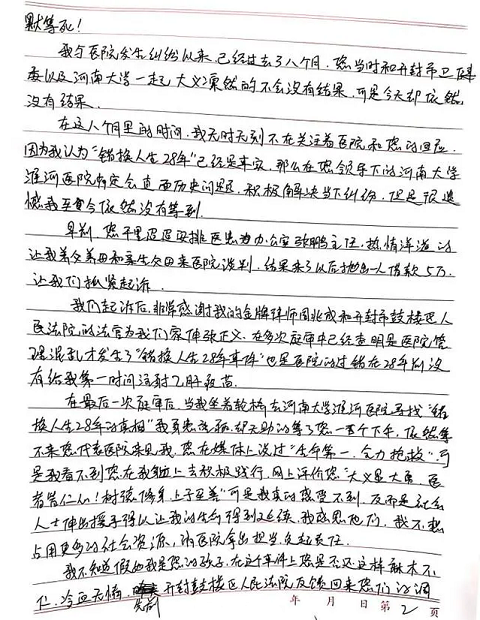 默等死！
我与医院发生纠纷以来，已经过去了八个月，您当时和开封市卫健
委以及河南大学一起，大义凛然的不会没有结果，可是今天却依然
没有结果。
在这八个月里的时间，我无时无刻不在关注着医院和您的回应，
因为我认为“错换人生28年”已经是事实，那么在您领导下的河南大学
淮河医院肯定会直面历史问题，积极解决当下纠纷，但是很遗
憾我至今依然没有等到。
早前，您千里迢迢安排医患办办公室张鹏主任，热情洋溢的
让我养父养母和亲生父母来医院谈判，结果来了以后抛出一人借款5万，
让我们抓紧起诉。
我们起诉后，非常感谢我的金牌律师周兆成和开封市鼓楼区人
民法院的法官为我们家伸张正义，在多次庭审中已经查明是医院管
理混乱才发生了“错换人生28年事件”也是医院的过错在28年前没
有给我第一时间注射乙肝疫苗。
在最后一次庭审后，当我坐着轮椅去河南大学淮河医院寻找“错
换人生28年的真相”我
无助的等了您一百个下午，依然等
不来您代表医院来见我，您在媒体上说过“生命第一，全力抢救”可
是我看不到您在我
上去积极践行，网上评价您“大义是大勇，医
者皆仁心！树德修身上于至善”可是我真的感受不到，反而是社会
人士伸出援手得以让我的生命得到延续，我感恩他们，我不想
占用更多的社会资源，请医院拿出担当负起责任。
我不知道假如我是您的孩子，在这个事件上您是否还这样麻木不
仁，冷血无情，
开封鼓楼区人民法院反馈回来您们的调
年 月 日 第2页